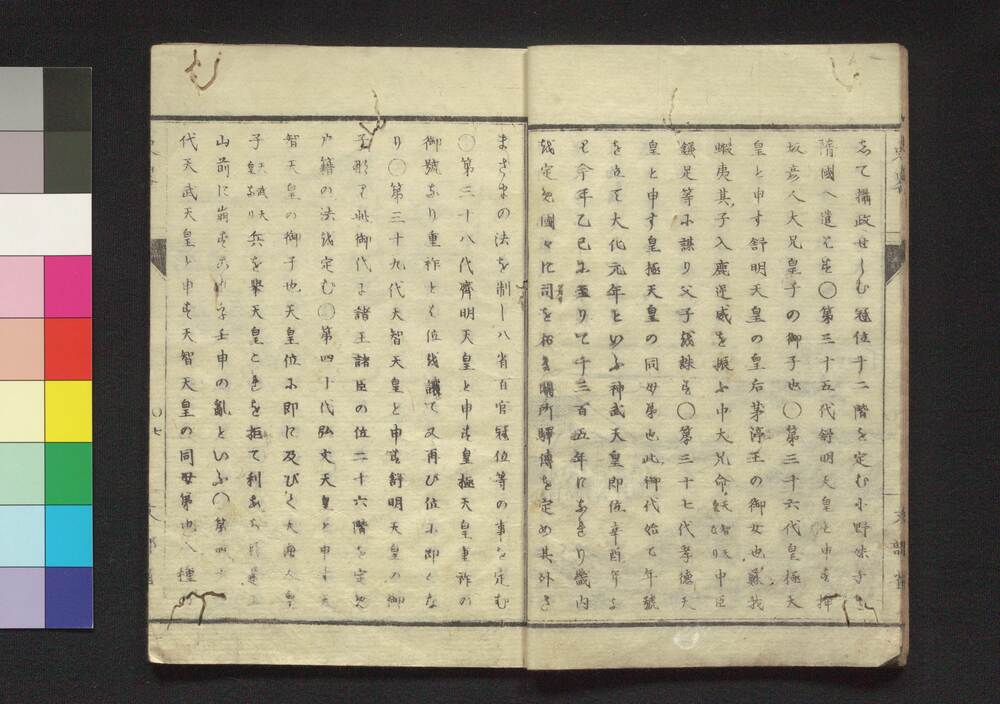 して攝政せしむ冠位十二階を定む小野妹子を
隋國へ遣はす〇第三十五代舒明天皇と申す押
坂彦人大兄皇子の御子也〇第三十六代皇極天
皇と申す舒明天皇の皇后茅渟王の御女也蘇我
蝦夷其子入鹿逆威を振ふ中大兄命天智天皇なり中臣
鎌足等小謀り父子を誅す〇第三十七代孝德天
皇と申す皇極天皇の同母弟也此御代始て年號
を立て大化元年といふ神武天皇即位辛酉年よ
り今年乙巳に至りて千三百五年になれり畿内
を定む國々に司を おき關所驛傳を定め其外さ
まざまの法を制し八省百官冠位等の事を定む
〇第三十八代齊明天皇と申す皇極天皇重祚の
御號なり重祚とは位を讓て又再び位に即くな
り〇第三十九代天智天皇と申す舒明天皇の御
子也 此御代に諸王諸臣の位二十六階を定む
戸籍の法を定む〇第四十代弘文天皇と申す天
智天皇の御子也天皇位に即に及びて大海人皇
子天武天皇なり兵を擧天皇これを拒て利あらず
山前に崩ずこれを壬申の亂といふ〇第四十
代天武天皇と申す天智天皇の同母弟也八種の
〇七